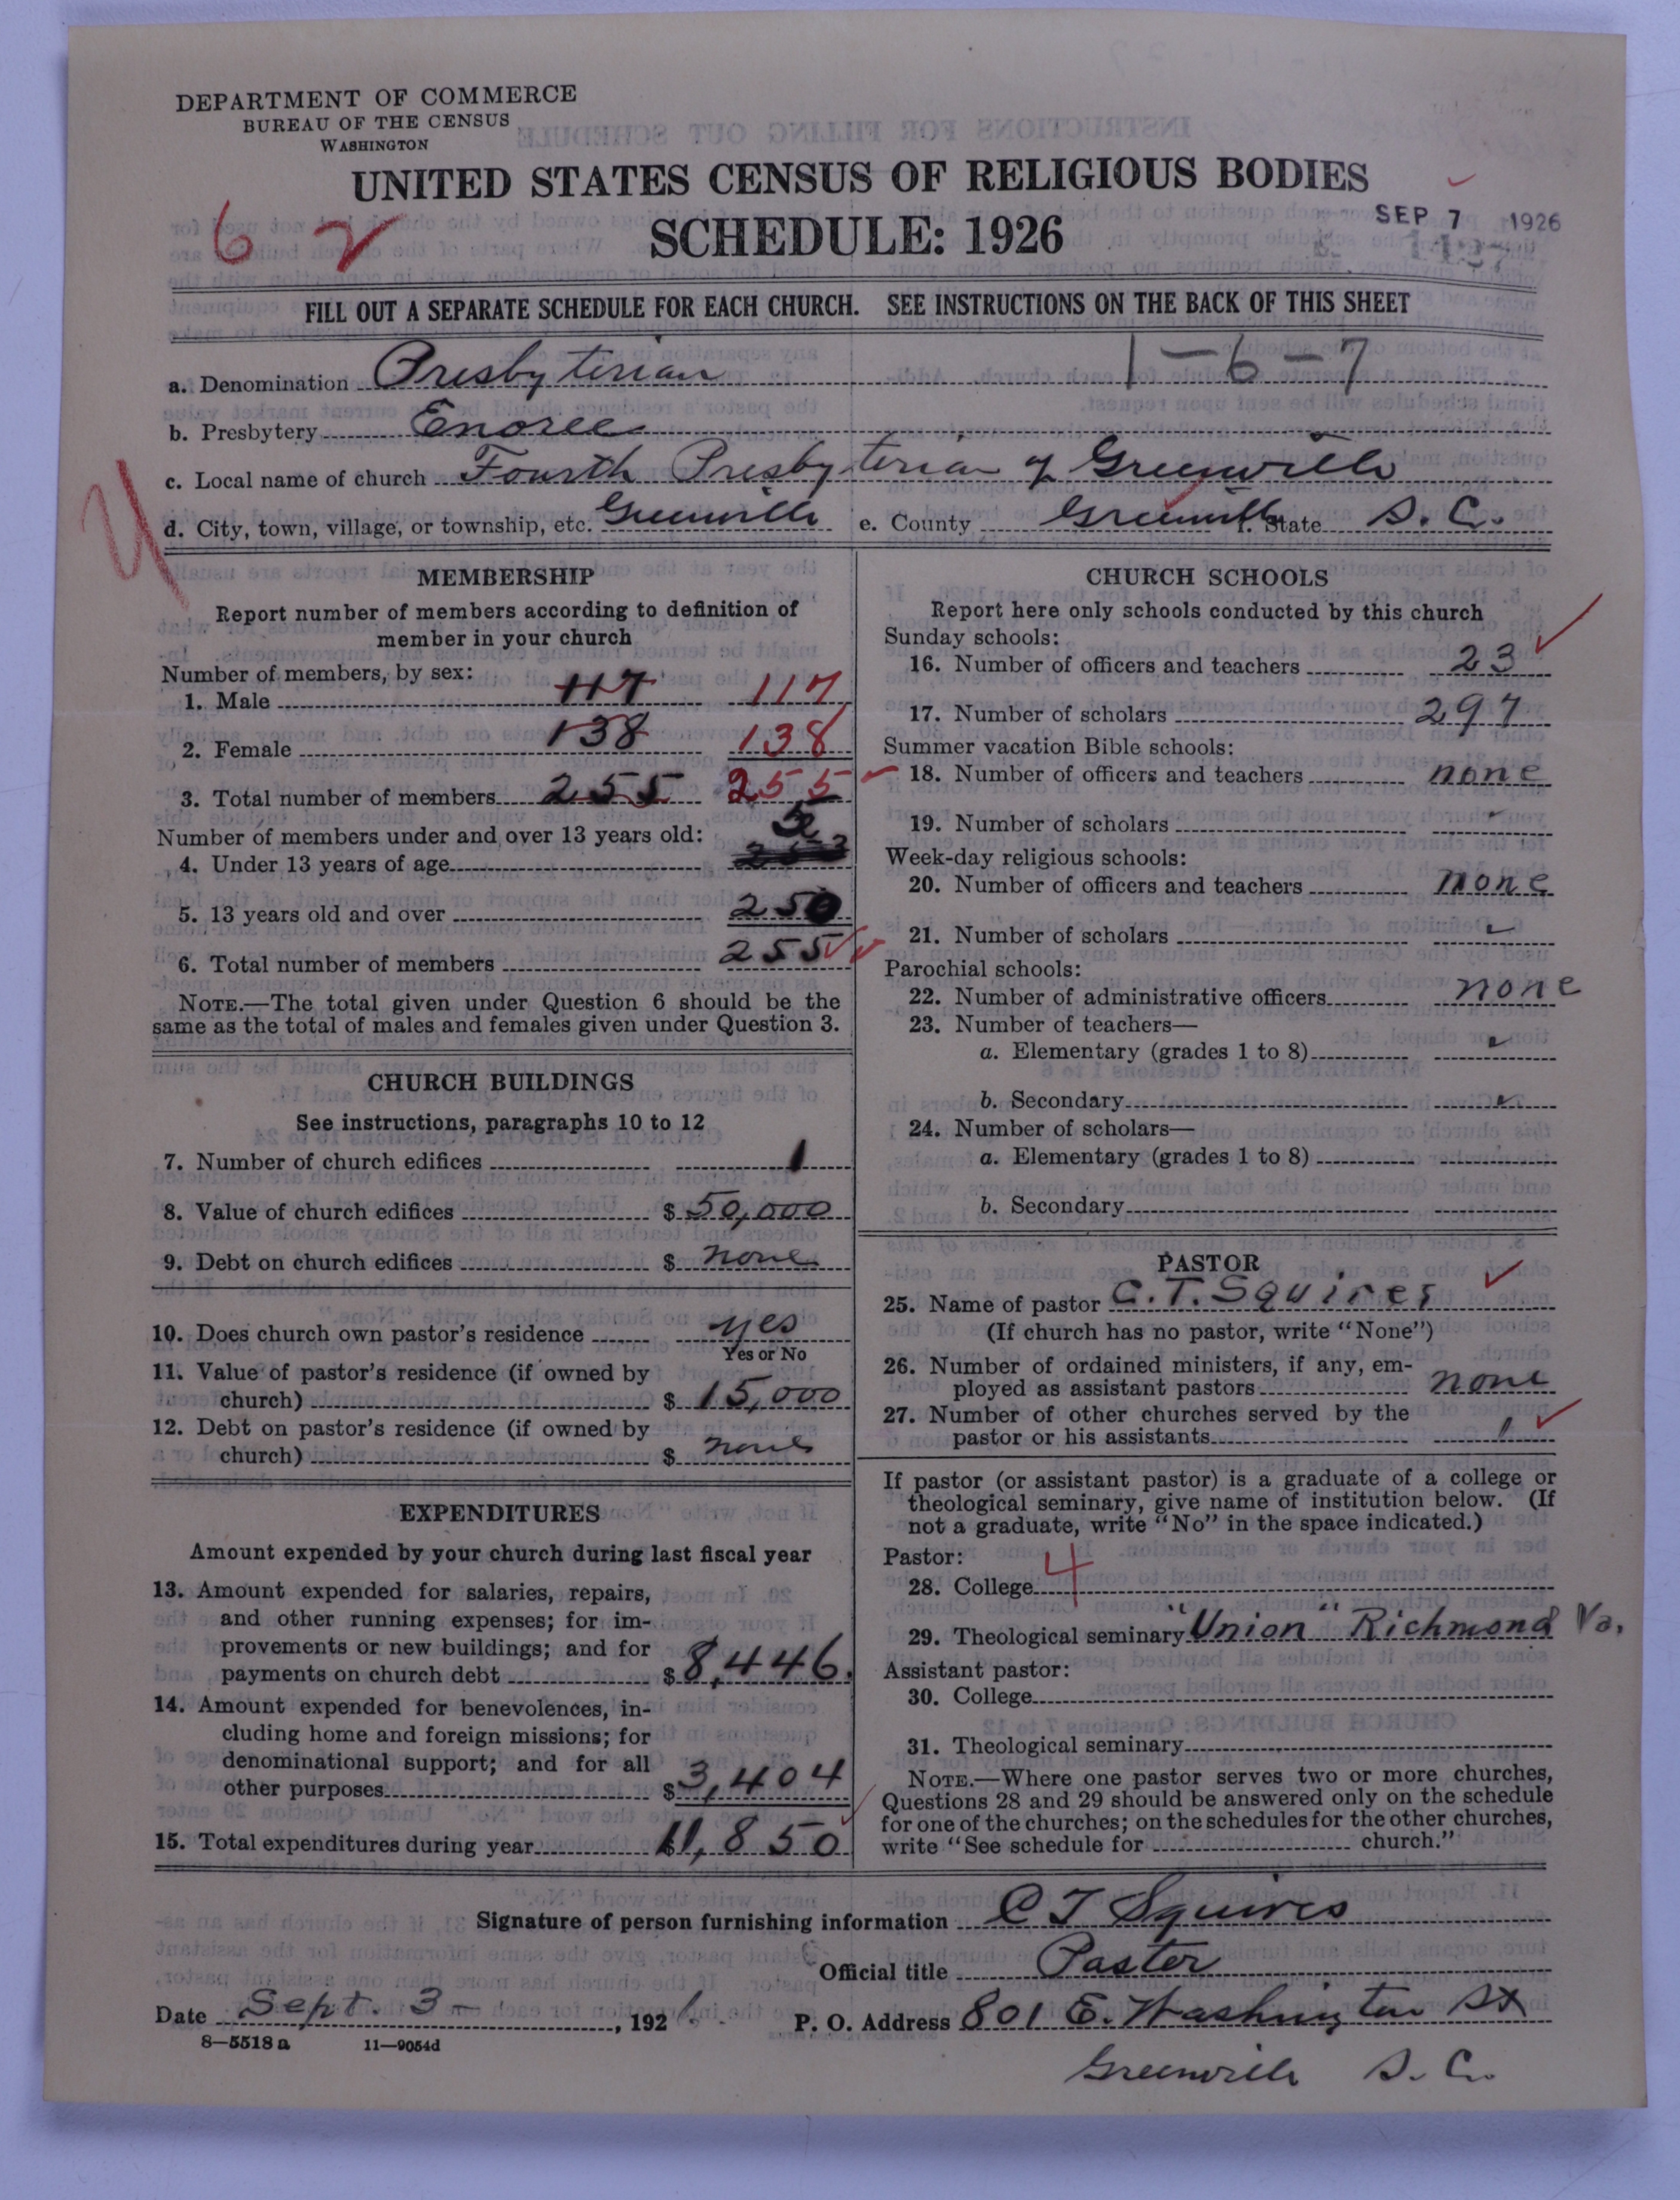 DEPARTMENT OF COMMERCE
BUREAU OF THE CENSUS
WASHINGTON
UNITED STATES CENSUS OF RELIGIOUS BODIES
SCHEDULE: 1926
6 2
SEP 7 1926
FILL OUT A SEPARATE SCHEDULE FOR EACH CHURCH. SEE INSTRUCTIONS ON THE BACK OF THIS SHEET
a. Denomination Presbyterian 1-6-7
b. Presbytery Enoree
c. Local name of church Fourth Presbyterian of Greenville
d. City, town, village, or township, etc. Greenville e. County Greenville f. State S. C.
MEMBERSHIP
Report number of members according to definition of
member in your church
Number of members, by sex:
1. Male 117 117
2. Female 138 138
3. Total number of members 255 255
Number of members under and over 13 years old:
4. Under 13 years of age 5
5. 13 years old and over 250
6. Total number of members 255
NOTE.—The total given under Question 6 should be the
same as the total of males and females given under Question 3.
CHURCH BUILDINGS
See instructions, paragraphs 10 to 12
7. Number of church edifices 1
8. Value of church edifices $ 50,000
9. Debt on church edifices $ none
10. Does church own pastor's residence yes
Yes or No
11. Value of pastor's residence (if owned by
church) $ 15,000
12. Debt on pastor's residence (if owned by
church) $ none
EXPENDITURES
Amount expended by your church during last fiscal year
13. Amount expended for salaries, repairs,
and other running expenses; for im-
provements or new buildings; and for
payments on church debt $ 8,446.
14. Amount expended for benevolences, in-
cluding home and foreign missions; for
denominational support; and for all
other purposes $ 3,404
15. Total expenditures during year $ 11,850
CHURCH SCHOOLS
Report here only schools conducted by this church
Sunday schools:
16. Number of officers and teachers 23
17. Number of scholars 297
Summer vacation Bible schools:
18. Number of officers and teachers none
19. Number of scholars
Week-day religious schools:
20. Number of officers and teachers none
21. Number of scholars
Parochial schools:
22. Number of administrative officers none
23. Number of teachers—
a. Elementary (grades 1 to 8)
b. Secondary
24. Number of scholars—
a. Elementary (grades 1 to 8)
b. Secondary
PASTOR
25. Name of pastor C. T. Squires
(If church has no pastor, write "None")
26. Number of ordained ministers, if any, em-
ployed as assistant pastors none
27. Number of other churches served by the
pastor or his assistants 1
If pastor (or assistant pastor) is a graduate of a college or
theological seminary, give name of institution below. (If
not a graduate, write "No" in the space indicated.)
Pastor:
28. College 4
29. Theological seminary "Union" Richmond Va.
Assistant pastor:
30. College
31. Theological seminary
NOTE.—Where one pastor serves two or more churches,
Questions 28 and 29 should be answered only on the schedule
for one of the churches; on the schedules for the other churches,
write "See schedule for church."
Signature of person furnishing information C T Squires
Official title Pastor
Date Sept. 3- , 192 P. O. Address 801 E. Washington St
8—5518 a 11—9054d
Greenville S. C.